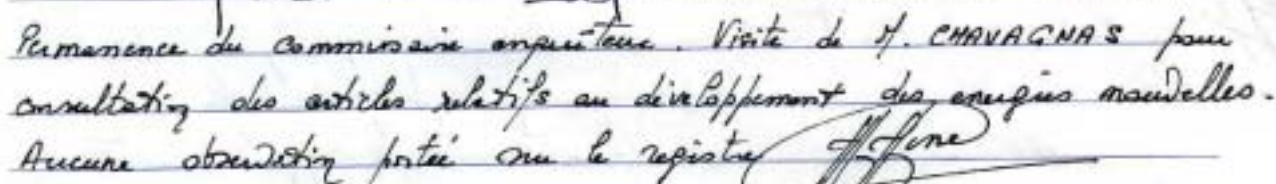 Permanence du commissaire enquêteur. Visite de M. CHAVAGNAS pour
consultation des articles relatifs au développement des energies nouvelles.
Aucune observation portée sur le registre